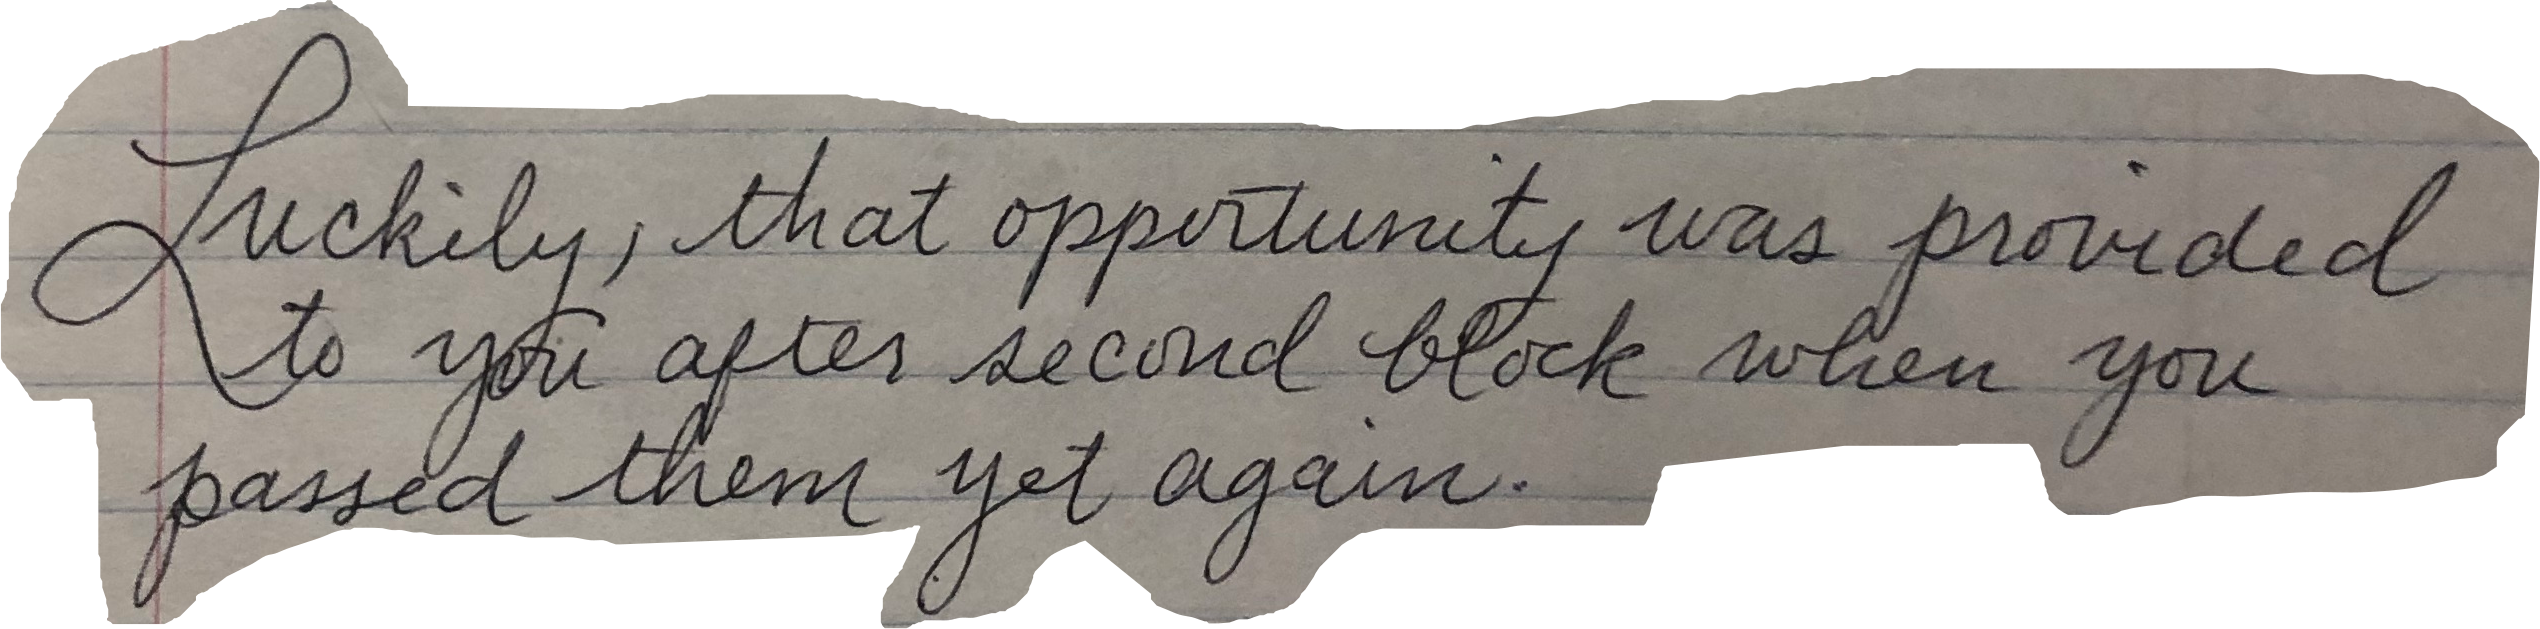 Luckily, that opportunity was provided
to you after second block when you
passed them yet again.